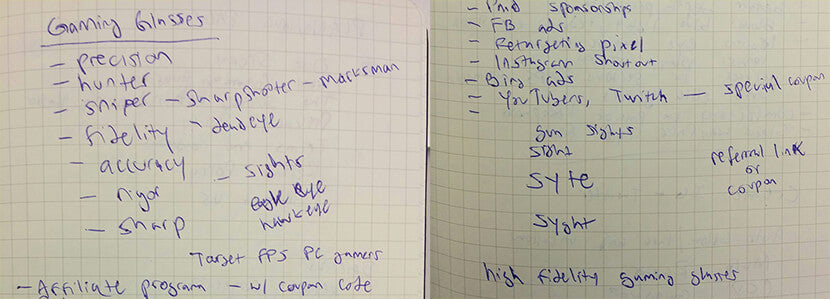 Gaming Glasses
- precision
- hunter
- sniper - sharpshooter - marksman
- fidelity - deadeye
- accuracy - sights
- rigor eagle eye
- sharp hawkeye
Target FPS PC gamers
- Affiliate program - w/ coupon code
- Paid sponsorships
- FB ads
- Retargeting pixel
- Instagram shoutout
- Bing ads
- YouTubers, Twitch - special coupon
-
gun sights
sight
referral link
or
coupon
syte
syght
high fidelity gaming glasses